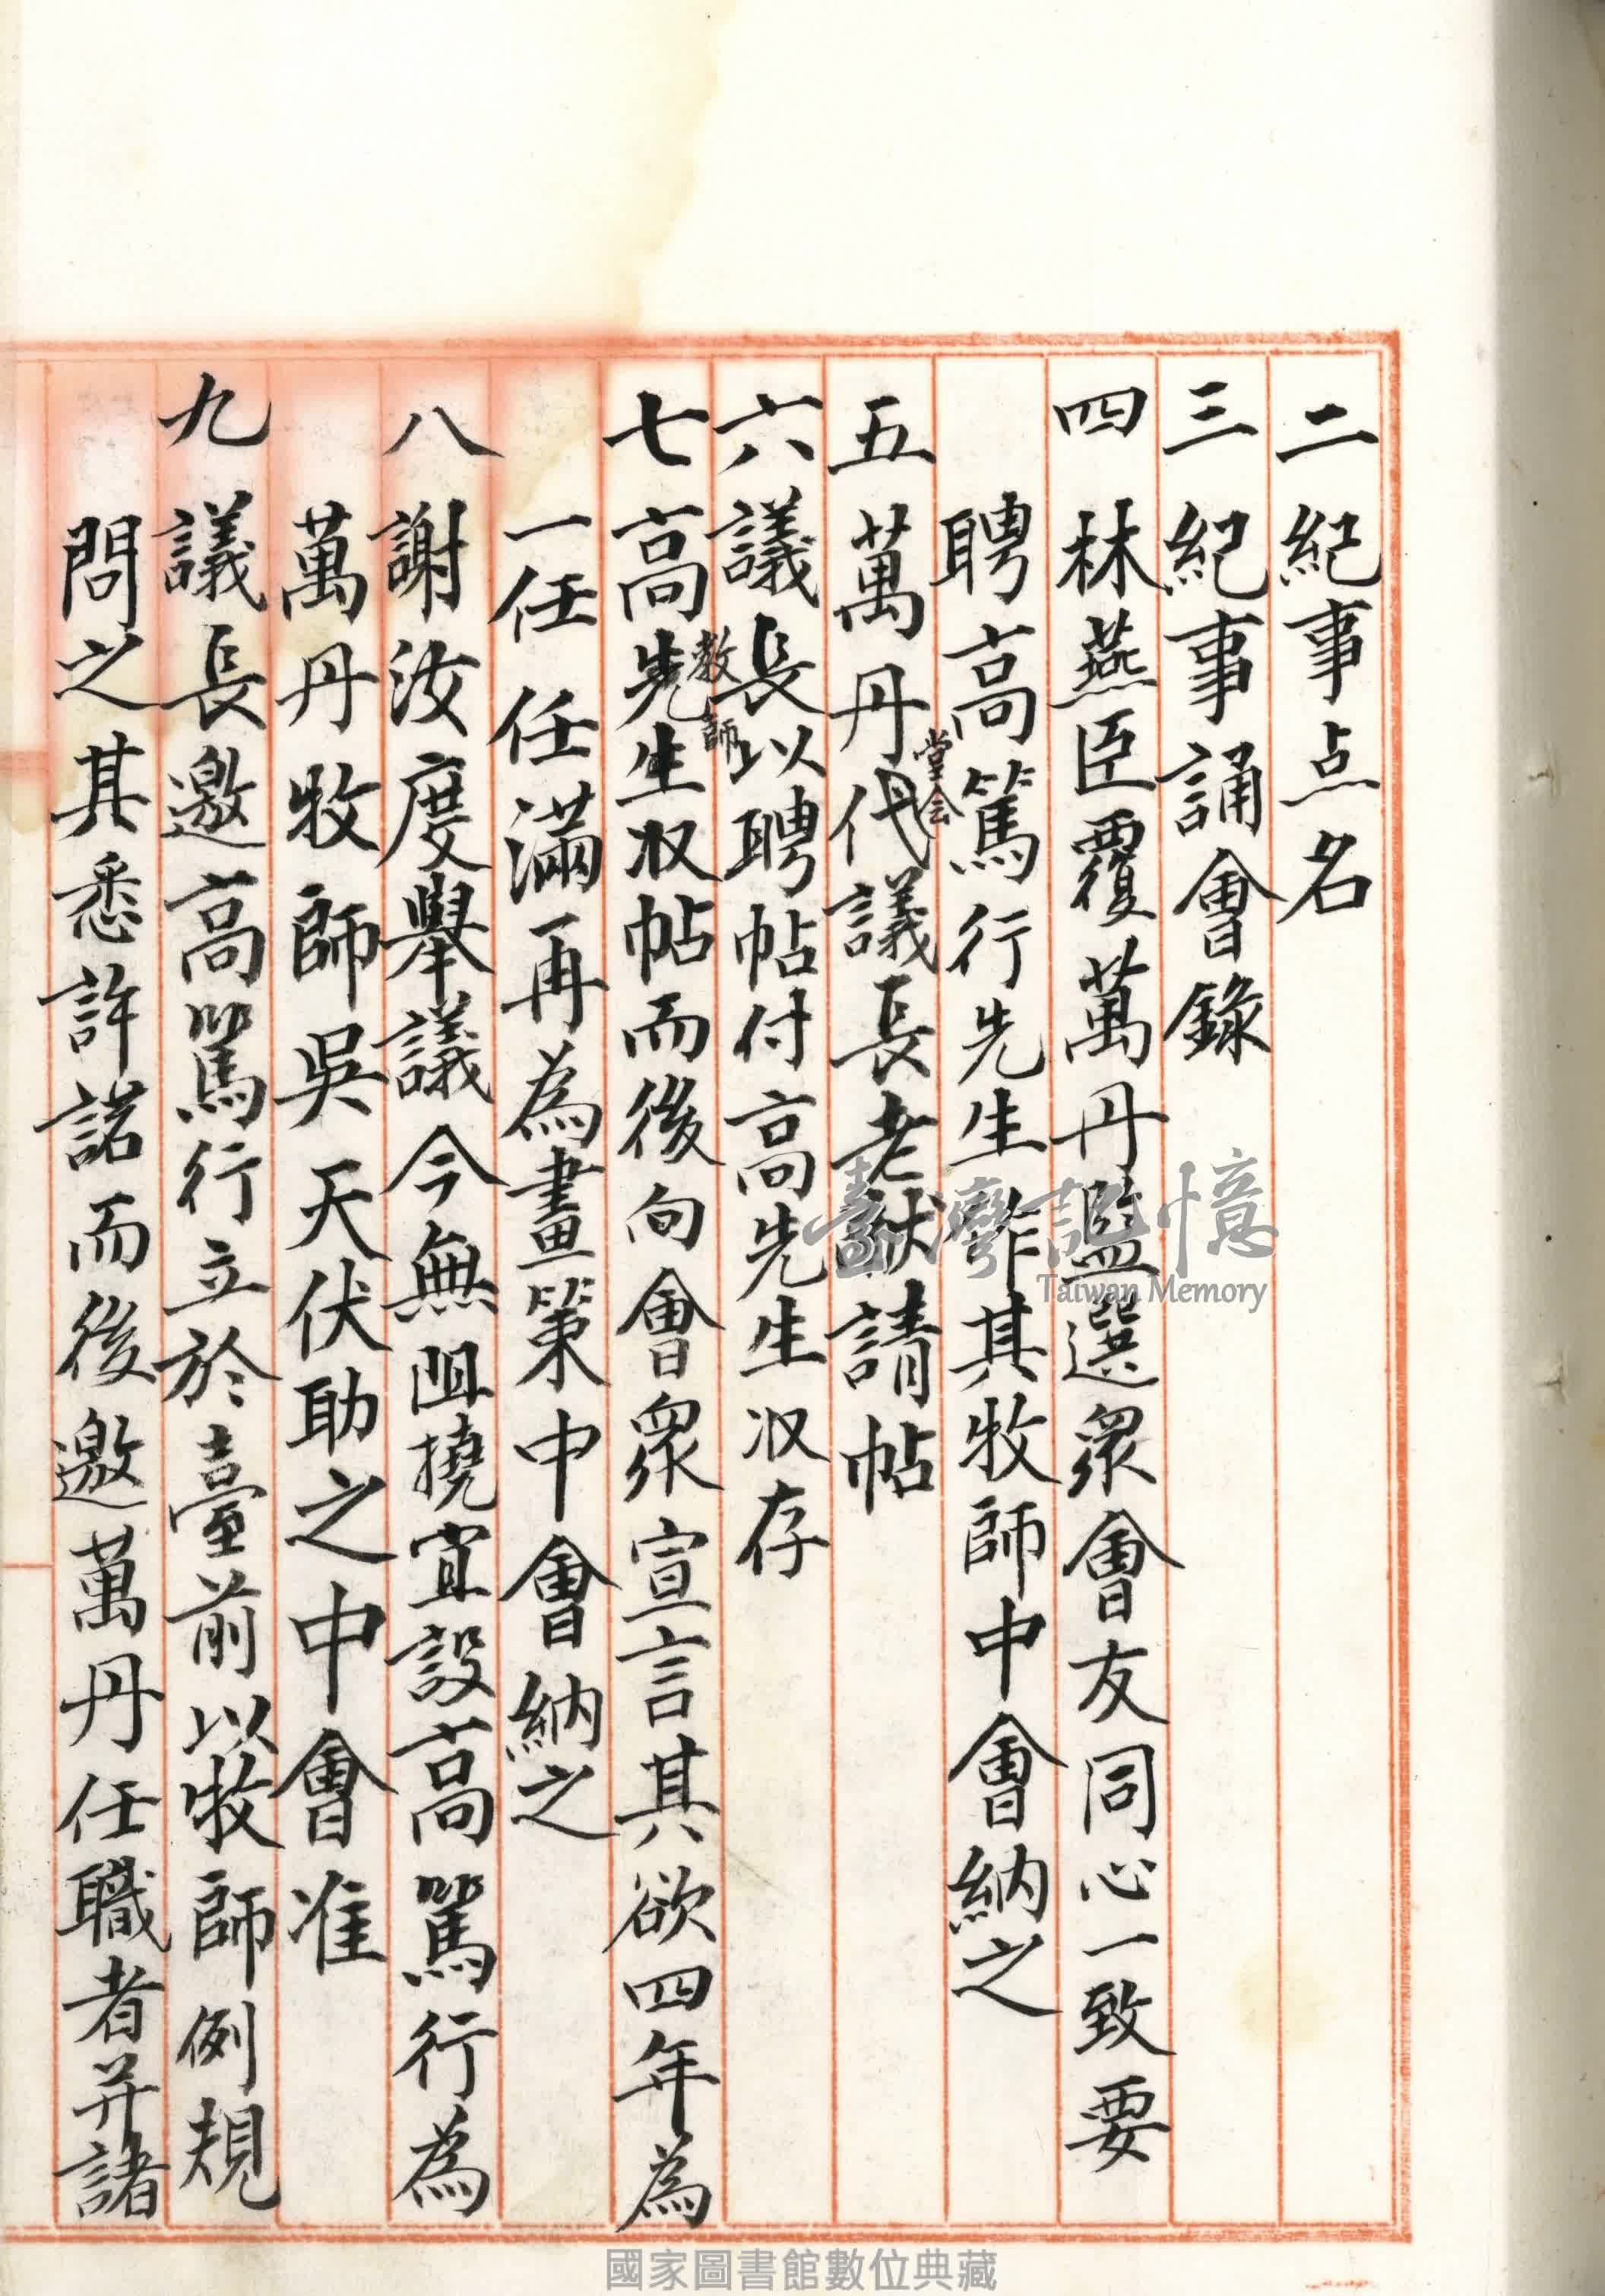 二 紀事点名
三 紀事誦會錄
四 林燕臣覆萬丹監選眾會友同心一致要
聘高篤行先生作其牧師中會納之
五 萬丹堂会代議長老献請帖
六 議長以聘帖付高先生收存
七 高先生教師收帖而後向會眾宣言其欲四年為
一任任滿再為畫策中會納之
八 謝汝度舉議今無阻撓宜設高篤行為
萬丹牧師吳天伏助之中會准
九 議長邀高篤行立於臺前以牧師例規
問之其悉許諾而後邀萬丹任職者并諸
臺灣記憶
Taiwan Memory
國家圖書館數位典藏